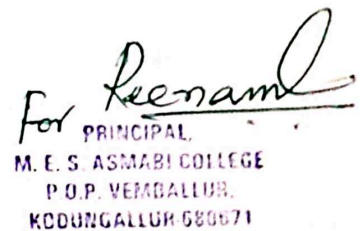 For Reenaml
PRINCIPAL,
M. E. S. ASMABI COLLEGE
P.O.P. VEMBALLUR,
KODUNGALLUR-680671